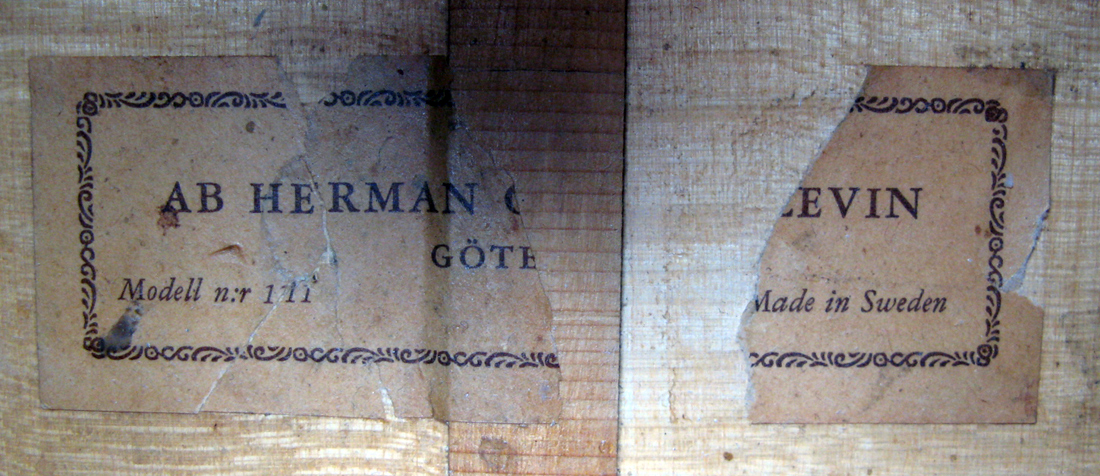 AB HERMAN C LEVIN
GÖTE
Modell n:r 111 Made in Sweden